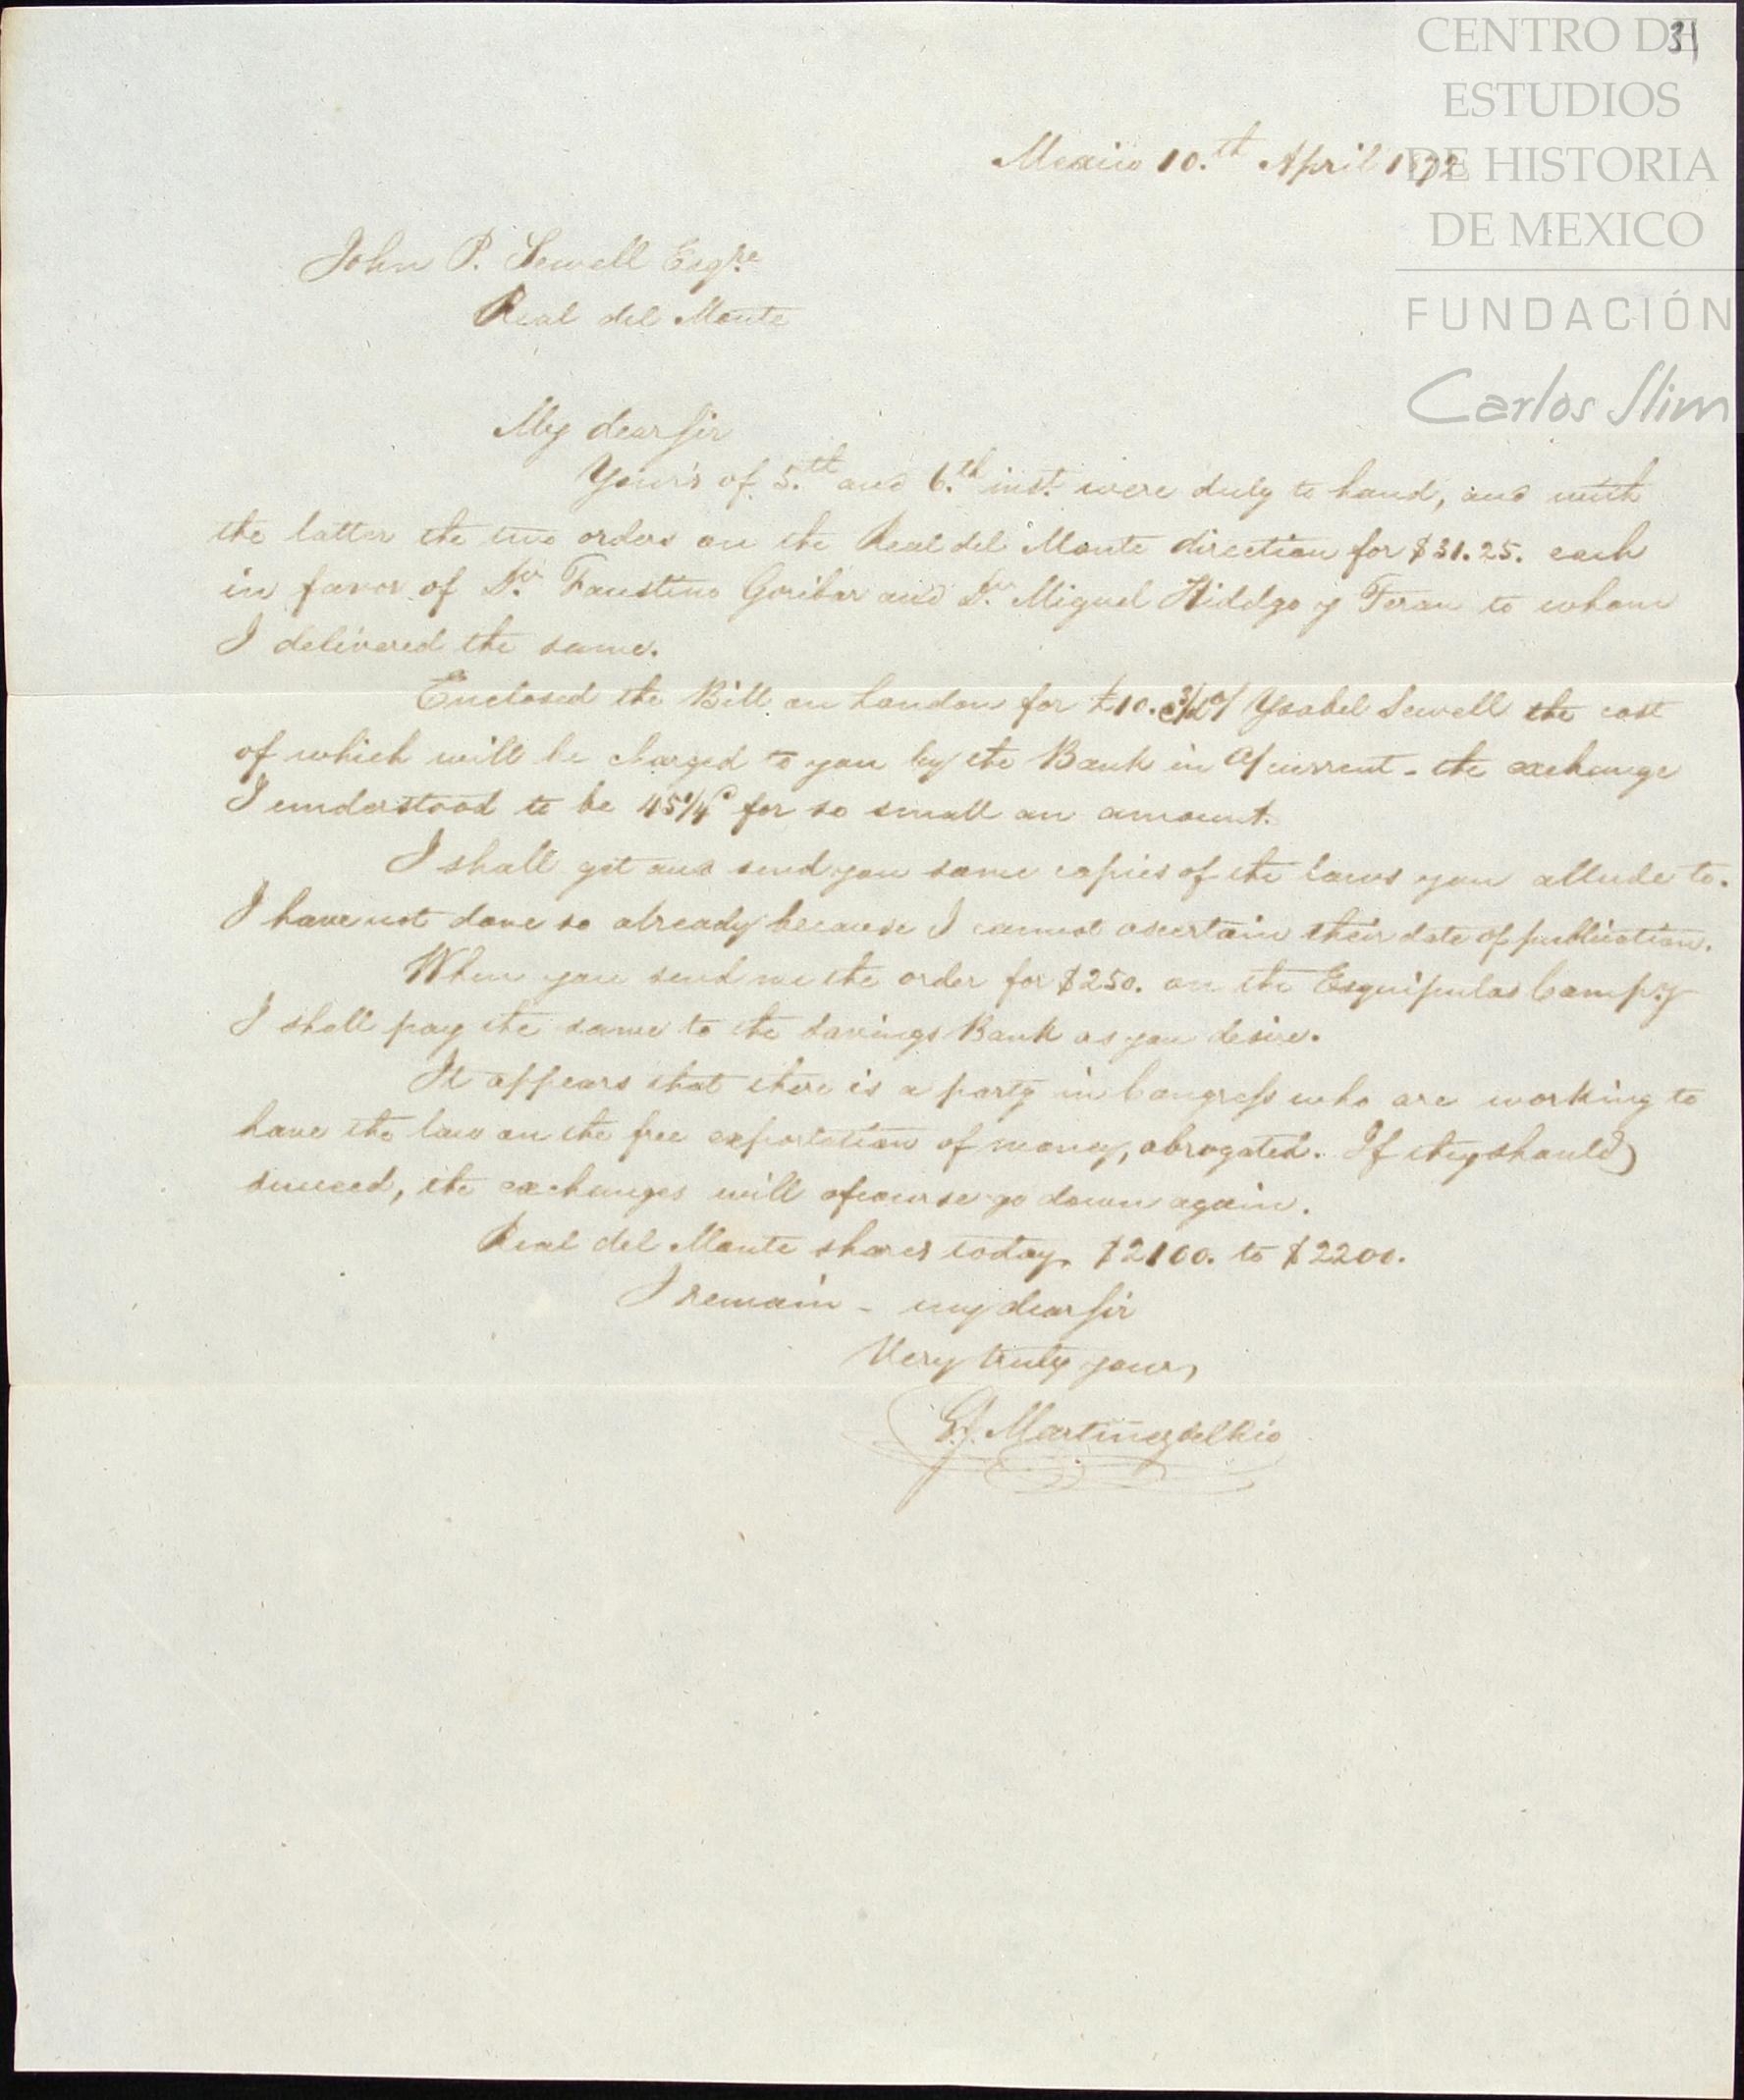 31
CENTRO DE
ESTUDIOS
DE HISTORIA
DE MEXICO
FUNDACIÓN
Carlos Slim
Mexico 10.th April 1872
John P. Sewell Esqre.
Real del Monte
My dear Sir
Your's of 5.th and 6.th inst. were duly to hand, and with
the latter the two orders on the Real del Monte direction for $31.25. each
in favor of Dn. Faustino Goribar and Dn. Miguel Hidalgo y Teran to whom
I delivered the same.
Enclosed the Bill on London for £10. Ysabel Sewell the cost
of which will be charged to you by the Bank in a/current - the exchange
I understood to be for so small an amount.
I shall get and send you some copies of the laws you allude to.
I have not done so already because I cannot ascertain their date of publication.
When you send me the order for $250. on the Esquipulas Compy
I shall pay the same to the Savings Bank as you desire.
It appears that there is a party in Congress who are working to
have the law on the free exportation of money, abrogated. If they should
succeed, the exchanges will of course go down again.
Real del Monte shares today $2100. to $2200.
I remain - my dear Sir
Very truly yours,
Martinez del Rio